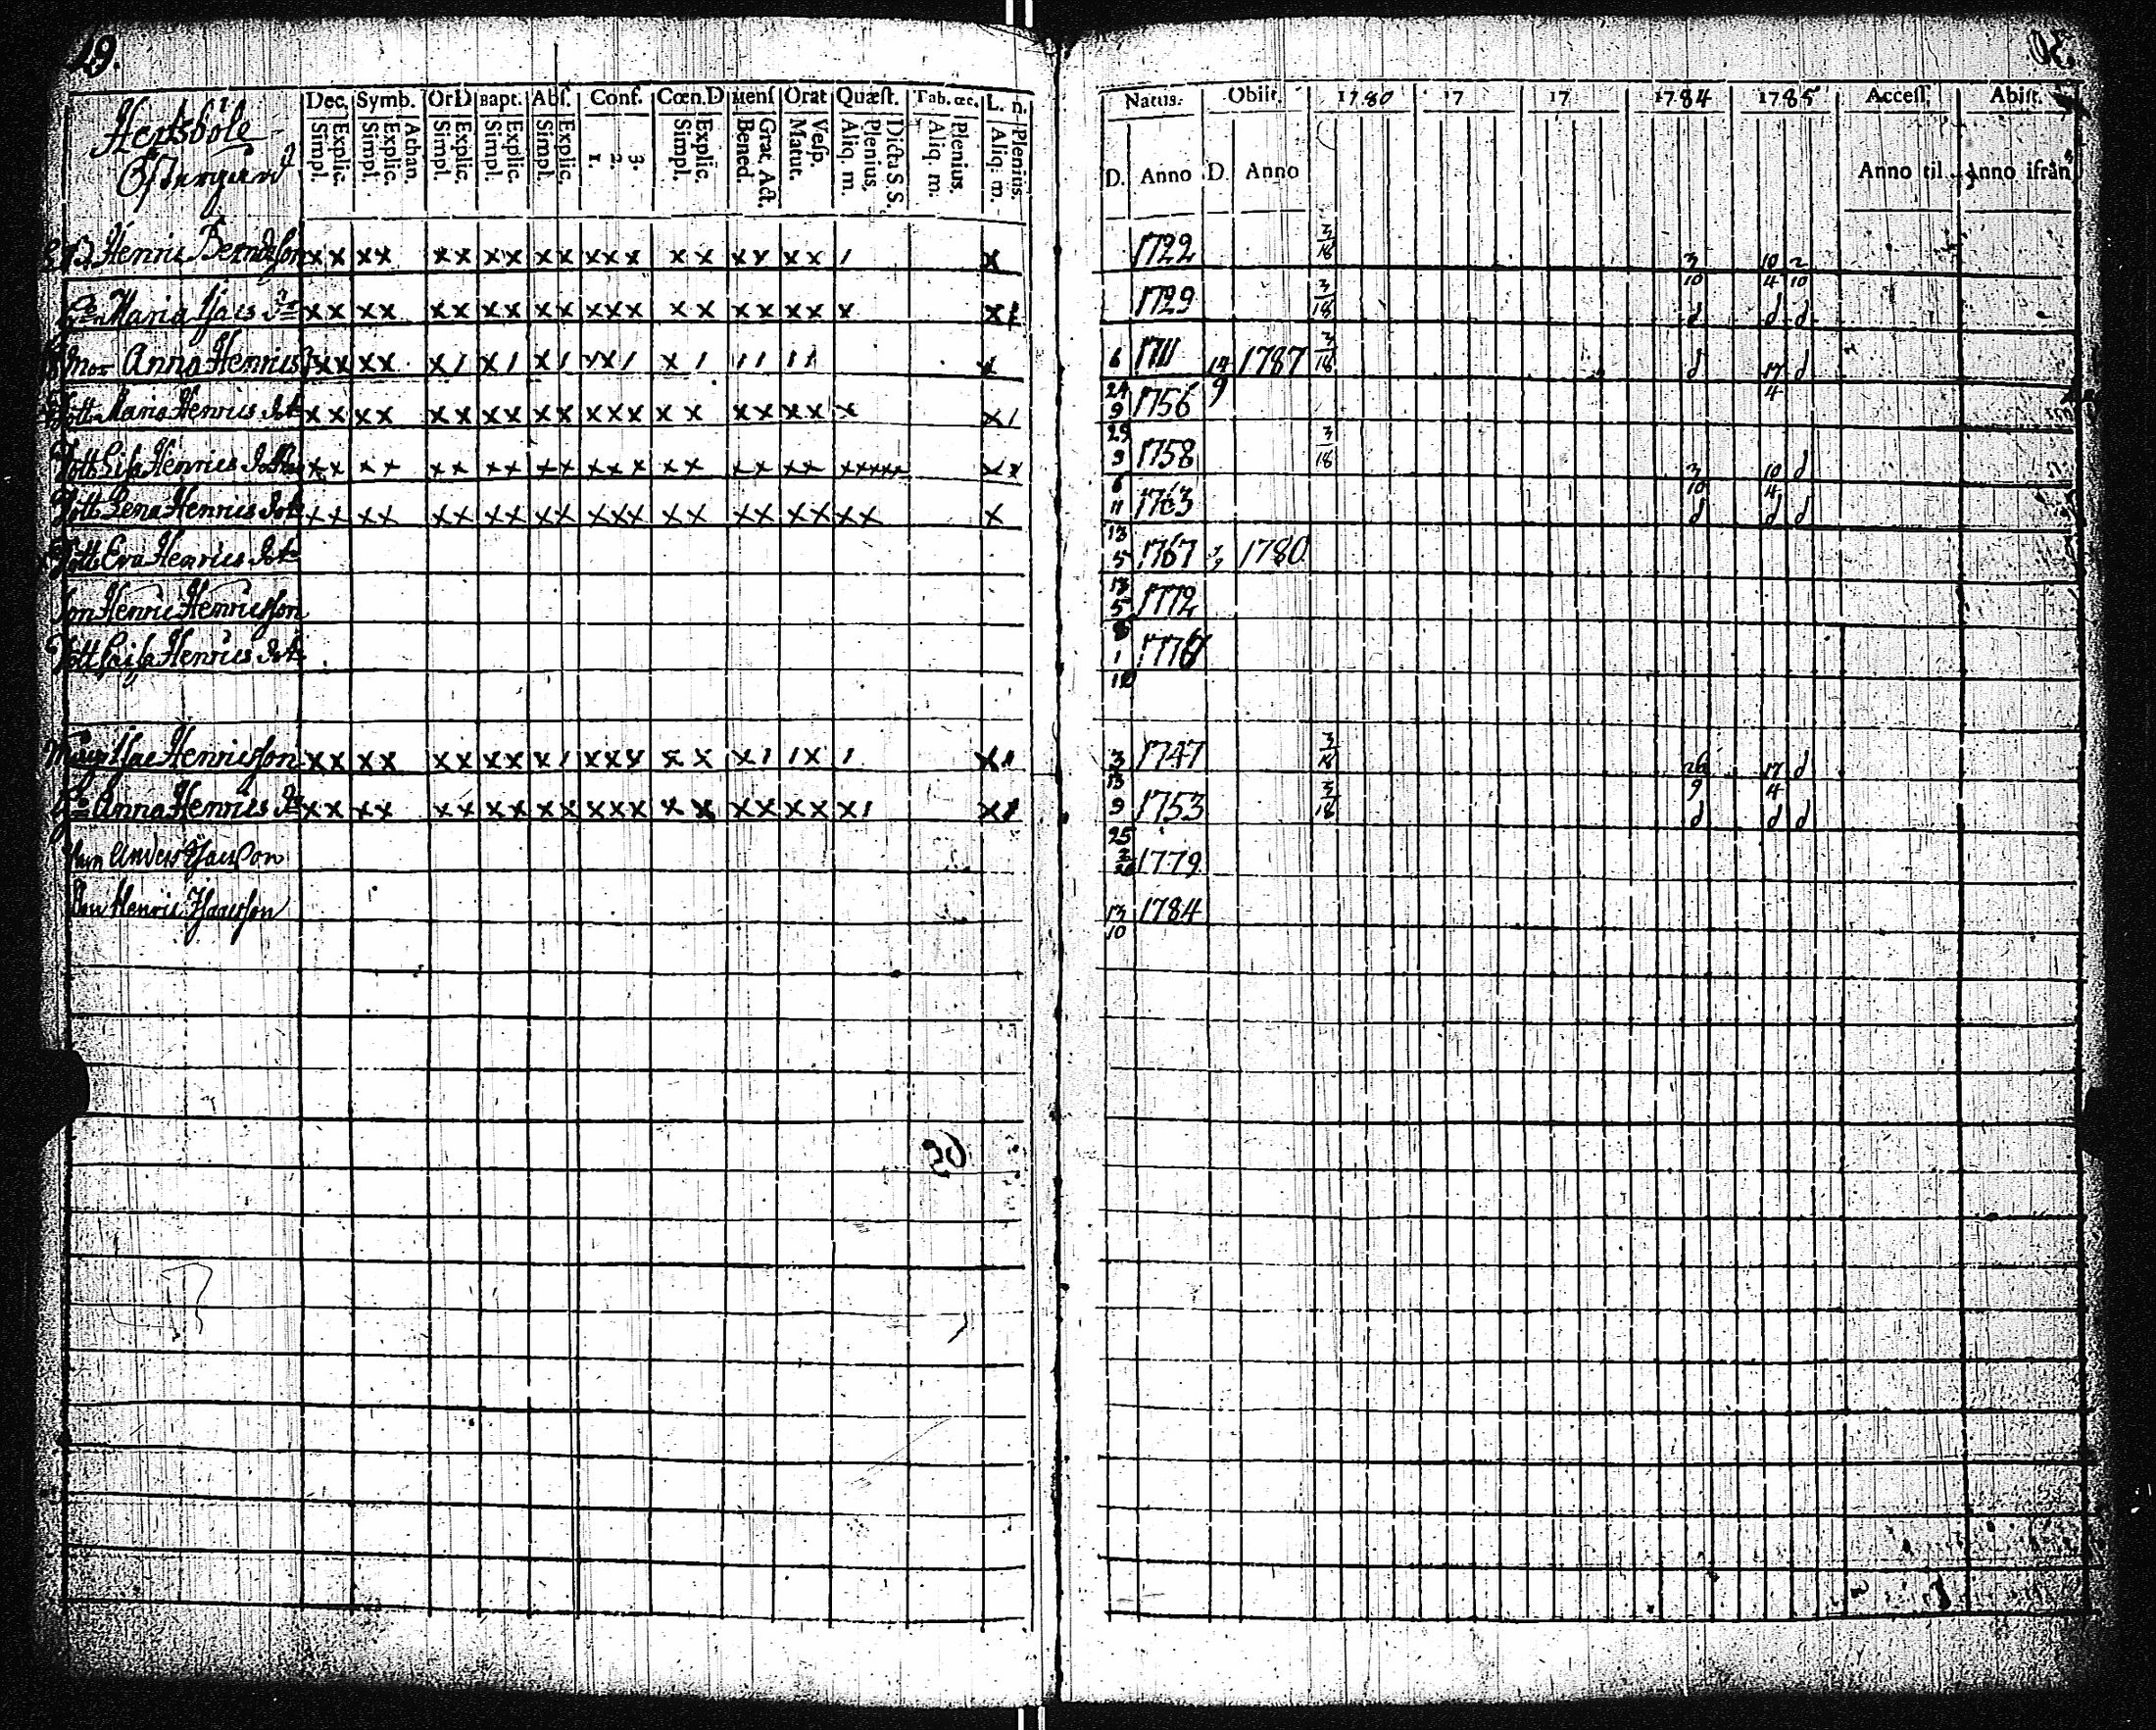 29.
Hertsböle
Östergård
Dec. Symb. Or D Bapt. Abs. Conf. Cœn. D Mens Orat Quæst. Tab. œc. L. n.
Simpl. Explic. Simpl. Explic. Athan. Simpl. Explic. Simpl. Explic. Simpl. Explic. 1. 2. 3. Simpl. Explic. Bened. Grat. Act. Matut. Vesp. Aliq. m. Plenius, Dicta S. S. Aliq. m. Plenius, Aliq. m. Plenius.
Natus. Obiit. 1780 17 17 1784 1785 Access. Abiit.
D. Anno D. Anno Anno til Anno ifrån
B. Henric Berndsson xx xx xx xx xx xxx xx xx xx 1 x 1722 3/18 3/10 10/4 2/10
Maria Isacs xx xx xx xx xx xxx xx xx xx x x1 1729 3/18 d d d
mor Anna Henrics xx xx x1 x1 x1 xx1 x1 11 11 6 1711 14/9 1787 3/18 d 17/4 d
Dott. Maria Henrics dot. xx xx xx xx xx xxx xx xx xx x x1 24/9 1756
Dott. Lisa Henrics xx xx xx xx xx xxx xx xx xx xxxxx xx 29/9 1758 3/18 3/10 10/4 d
Dott. Lena Henrics dot. xx xx xx xx xx xxx xx xx xx xx x 6/11 1763 d d d
Dott. Eva Henrics dot. 13/5 1767 1780
Son Henric Henricsson 13/5 1772
Dott. Caisa Henrics dot. 1
Isac Henricsson xx xx xx xx x1 xxx xx x1 1x 1 3 1747 3/18 26/9 17/4 d
Anna Henrics xx xx xx xx xx xxx xx xx xx x1 13/9 1753 3/18 d d d
Anders Isacsson 1779
Son Henric Isaacsson 13/10 1784